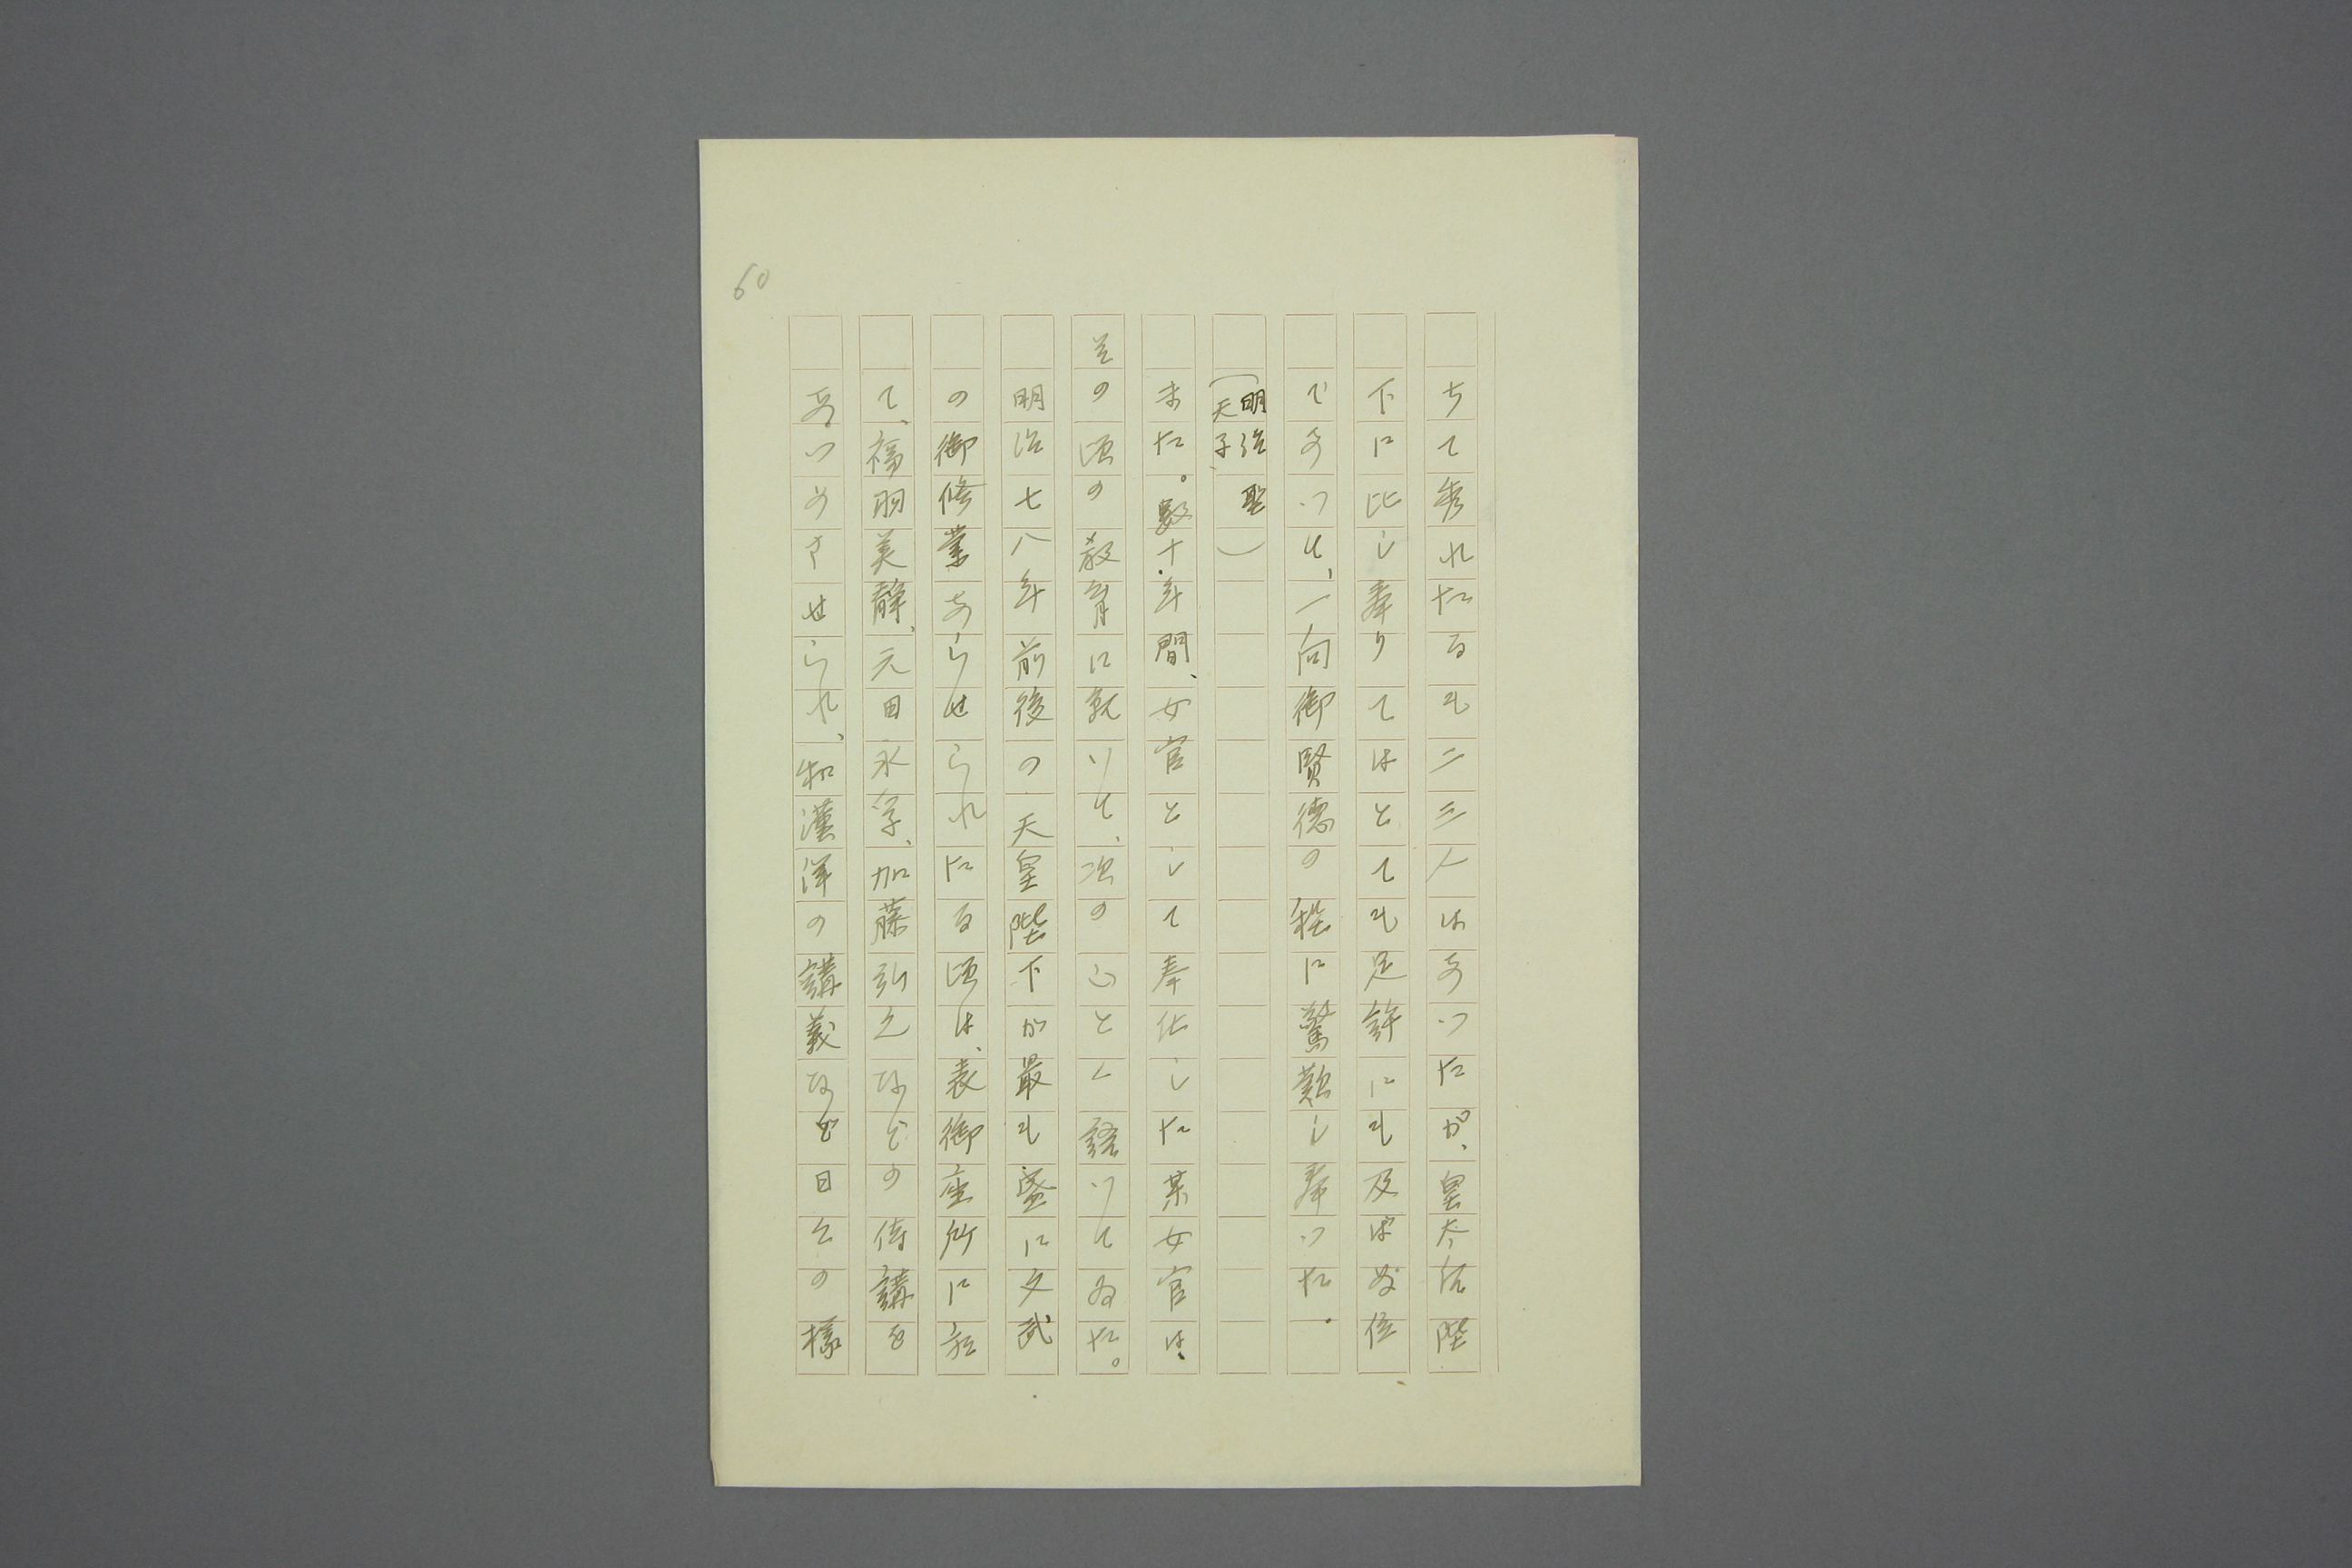 60
ちて秀れたるも二三人はあつたが、皇太后陛
下に比し奉りてはとても足許にも及ばぬ位
であつて、一向御賢徳の程に驚歎し奉つた。
(明治聖
天子)
また。數十年間、女官として奉仕した某女官は、
其の頃の教育に就いて、次のごとく語つてゐた。
明治七八年前後の天皇陛下が最も盛に文武
の御修業あらせられたる頃は、表御座所に於
て、福羽美静、元田永孚、加藤弘之などの侍講を
あつめさせられ、和漢洋の講義など日々の様